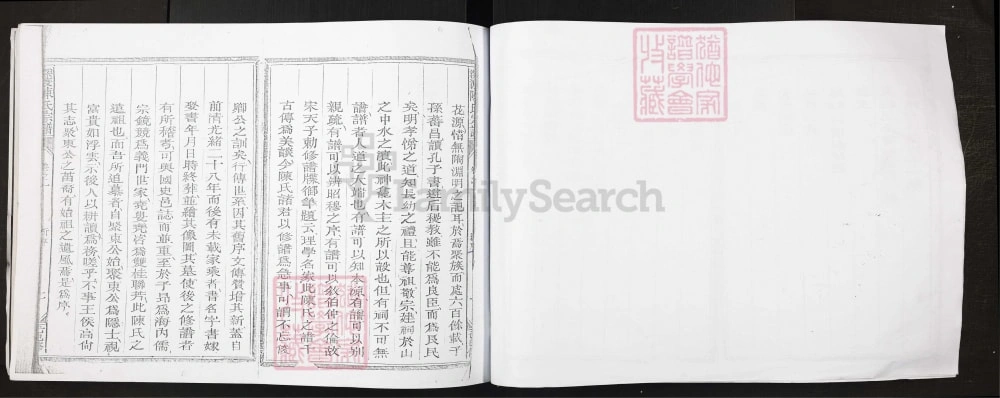 花源惜無陶淵明之記耳於焉聚族而處六百餘載子
孫蕃昌讀孔子書遵后稷教雖不能為良臣而為良民
矣明孝悌之道知長幼之禮且能尊祖敬宗建祠於山
之中水之濱此神龕木主之所以設也但有祠不可無
譜譜者人道之大端也有譜可以知本源有譜可以別
親疏有譜可以辨昭穆之序有譜可以敘伯仲之倫故
宋天子勅修譜牒御筆題云理學名家此陳氏之譜千
古傳為美談今陳氏諸君以修譜為急事可謂不忘
卿公之訓矣行傳世系因其舊序文傳贊增其新蓋自
前清光緒二十八年而後有未載家乘者書名字書嫁
娶書年月日時終葬並繪其像圖其墓使後之修譜者
有所稽考可與國史邑誌而並重至於子昂為海內儒
宗鏡競為義門世家堯粵堯咨為雙桂聯芳此陳氏之
遠祖也而吾所追慕者自聚東公始聚東公為隱士視
富貴如浮雲示後人以耕讀為務嗟乎不事王侯高尚
其志聚東公之苗裔有始祖之遺風焉是為序
FamilySearch
譜學會
收藏